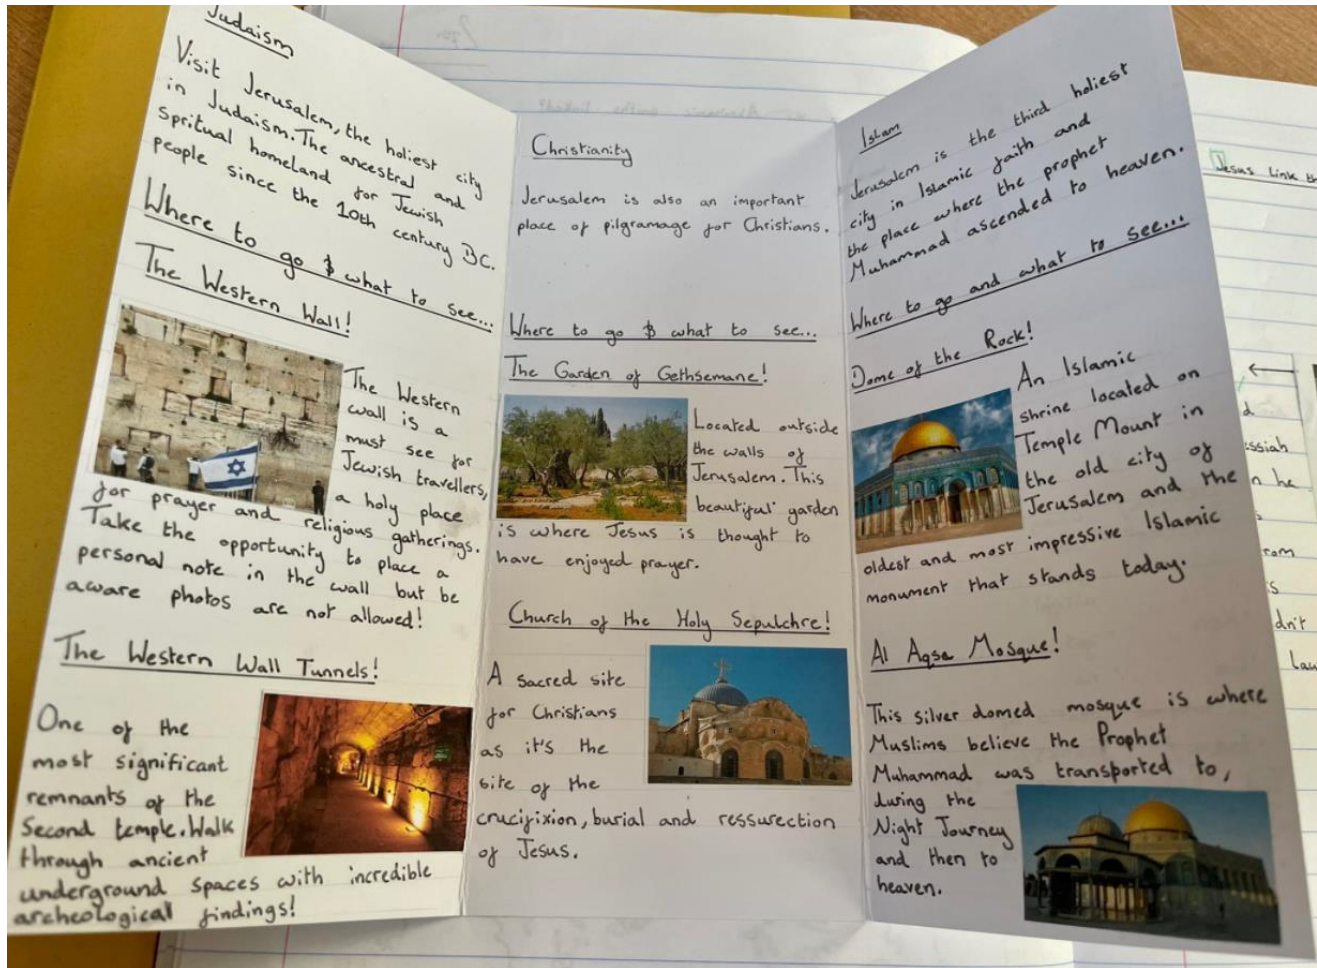 Judaism
Visit Jerusalem, the holiest city
in Judaism. The ancestral and
spritual homeland for Jewish
people since the 10th century BC.
Where to go & what to see...
The Western Wall!
The Western
wall is a
must see for
Jewish travellers,
a holy place
for prayer and religious gatherings.
Take the opportunity to place a
personal note in the wall but be
aware photos are not allowed!
The Western Wall Tunnels!
One of the
most significant
remnants of the
Second temple. Walk
through ancient
underground spaces with incredible
archeological findings!
Christianity
Jerusalem is also an important
place of pilgramage for Christians.
Where to go & what to see...
The Garden of Gethsemane!
Located outside
the walls of
Jerusalem. This
beautiful garden
is where Jesus is thought to
have enjoyed prayer.
Church of the Holy Sepulchre!
A sacred site
for Christians
as it's the
site of the
crucifixion, burial and ressurection
of Jesus.
Islam
Jerusalem is the third holiest
city in Islamic faith and
the place where the prophet
Muhammad ascended to heaven.
Where to go and what to see...
Dome of the Rock!
An Islamic
shrine located on
Temple Mount in
the old city of
Jerusalem and the
oldest and most impressive Islamic
monument that stands today.
Al Aqsa Mosque!
This silver domed mosque is where
Muslims believe the Prophet
Muhammad was transported to,
during the
Night Journey
and then to
heaven.
Jesus link